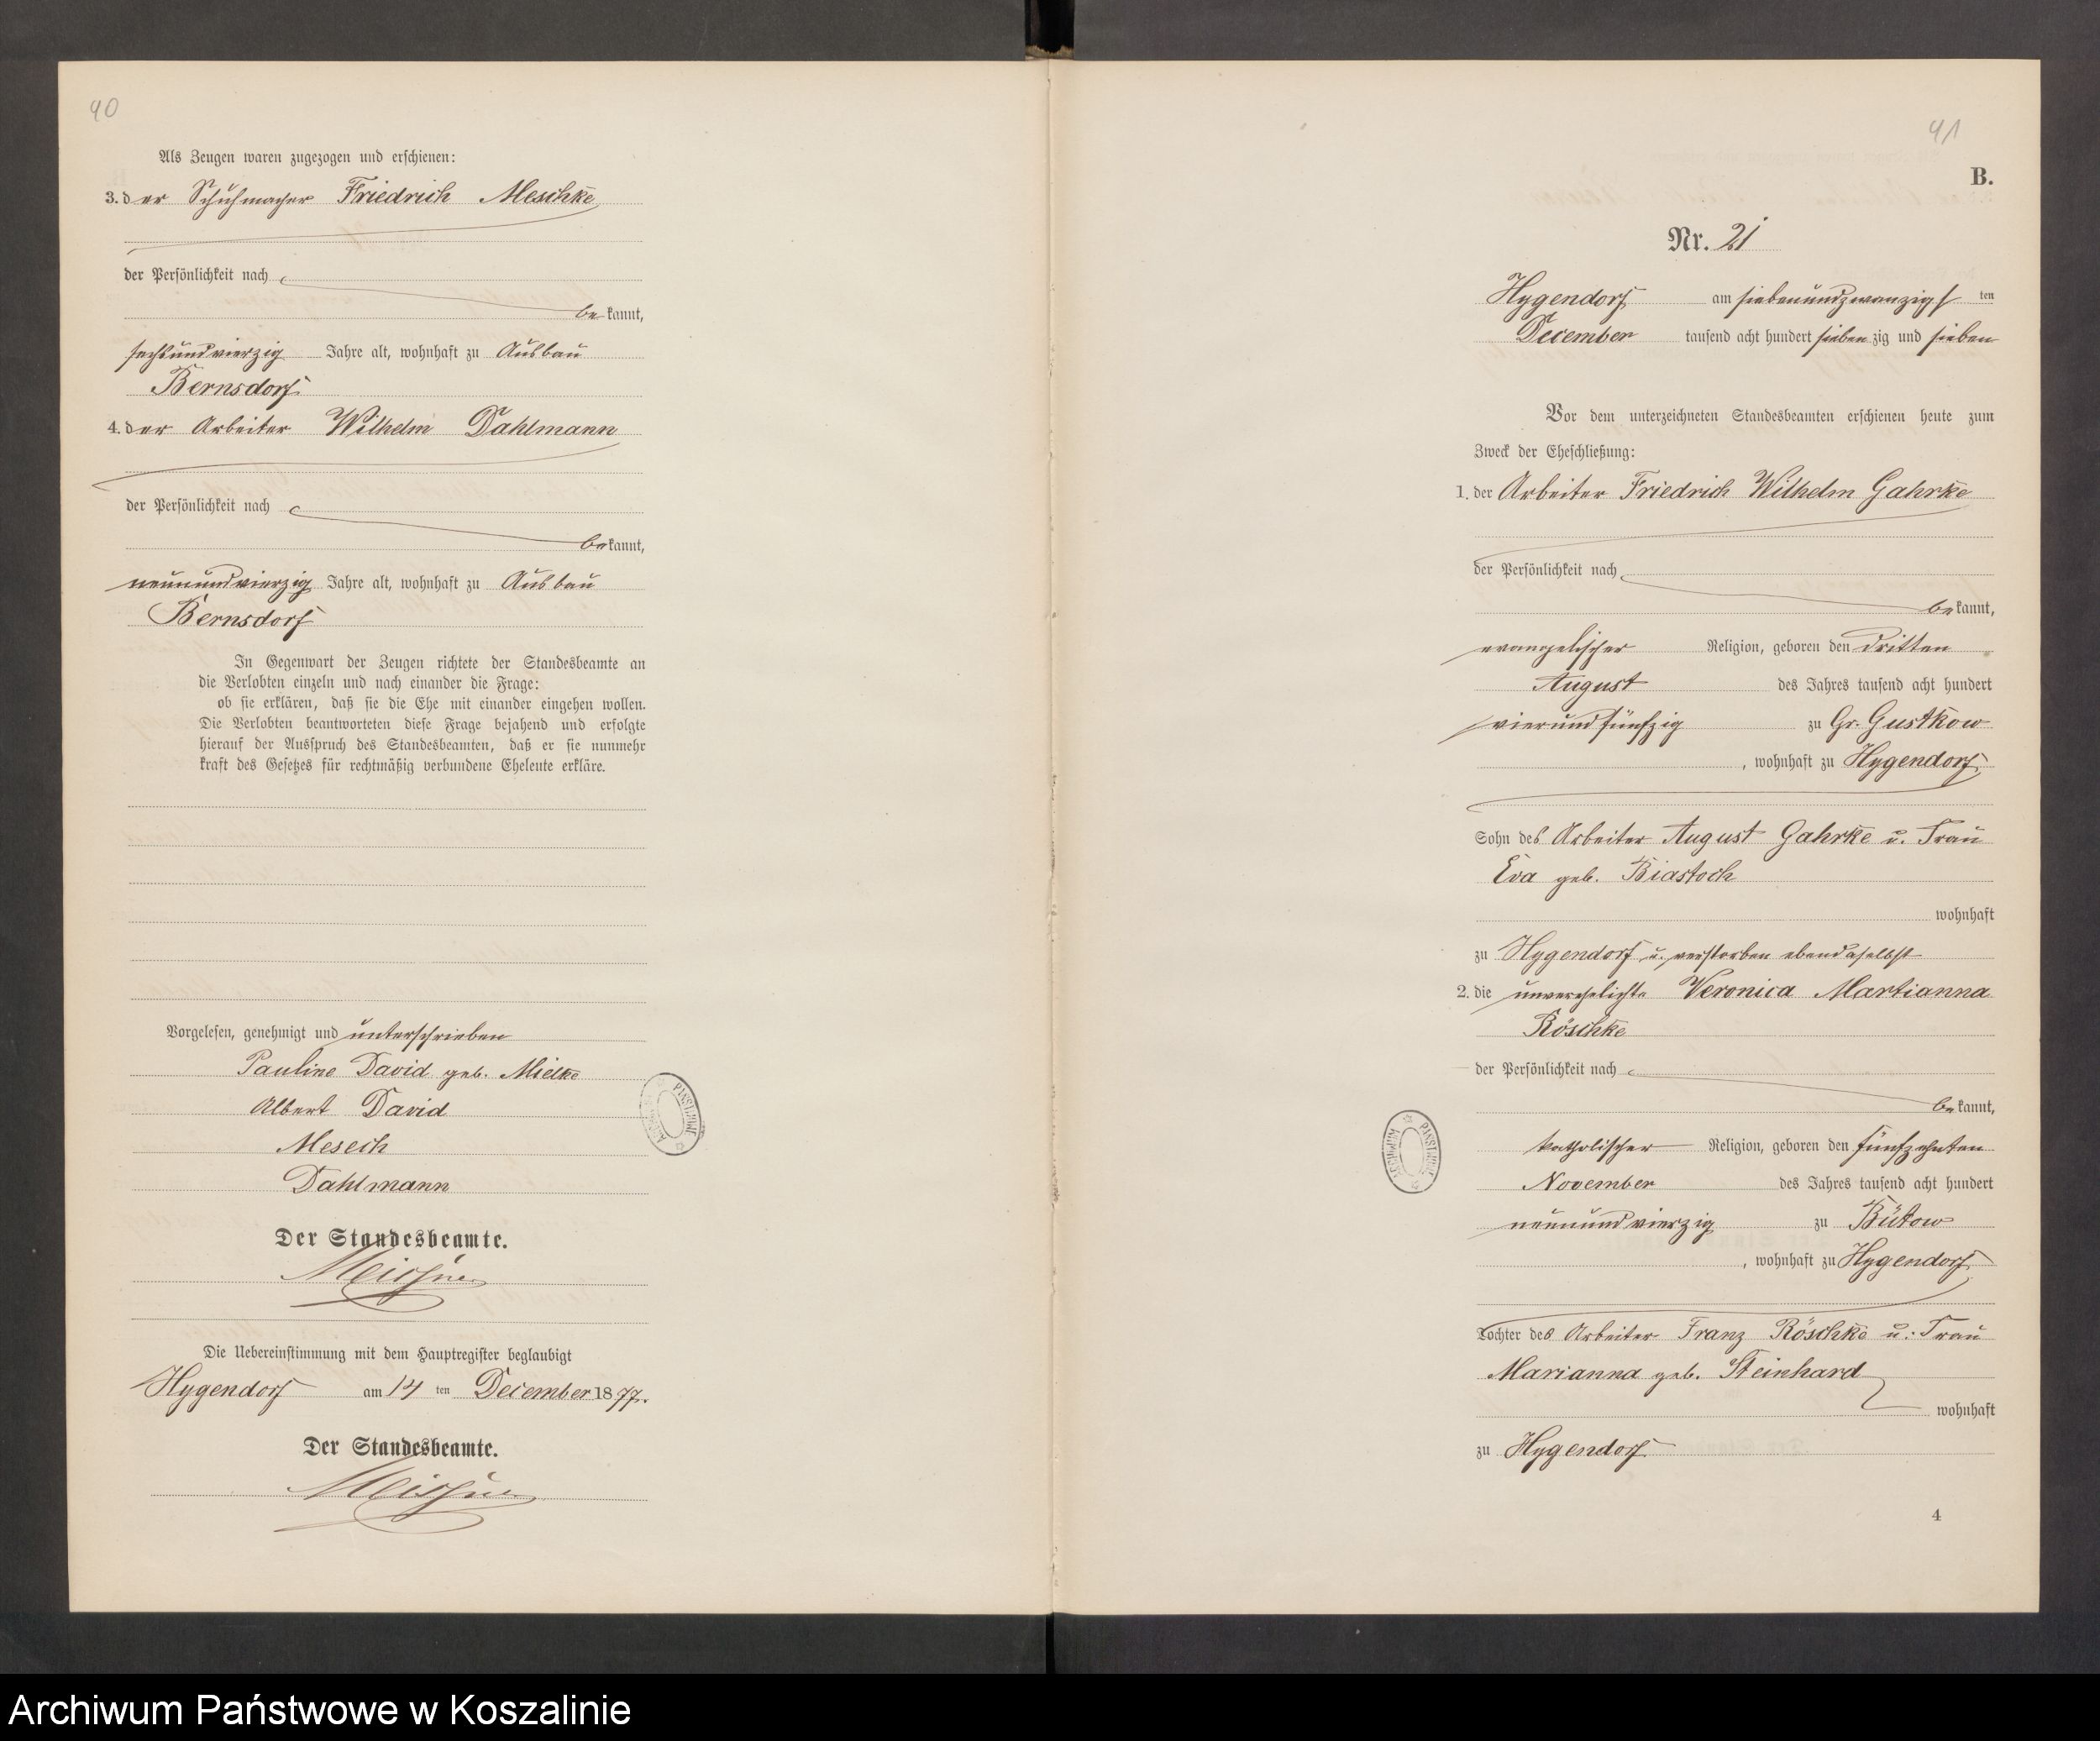 40
Als Zeugen waren zugezogen und erschienen:
3. der Schuhmacher Friedrich Meschke
der Persönlichkeit nach
bekannt,
sechsundvierzig Jahre alt, wohnhaft zu Ausbau
Bernsdorf
4. der Arbeiter Wilhelm Dahlmann
der Persönlichkeit nach
bekannt,
neunundvierzig Jahre alt, wohnhaft zu Ausbau
Bernsdorf
In Gegenwart der Zeugen richtete der Standesbeamte an
die Verlobten einzeln und nach einander die Frage:
ob sie erklären, daß sie die Ehe mit einander eingehen wollen.
Die Verlobten beantworteten diese Frage bejahend und erfolgte
hierauf der Ausspruch des Standesbeamten, daß er sie nunmehr
kraft des Gesetzes für rechtmäßig verbundene Eheleute erkläre.
Vorgelesen, genehmigt und unterschrieben
Pauline David geb. Mielke
Albert David
Mesech
Dahlmann
Der Standesbeamte.
Die Uebereinstimmung mit dem Hauptregister beglaubigt
Hygendorf am 14 ten December 1877.
Der Standesbeamte.
ARCHIWUM PAŃSTWOWE
41
B.
Nr. 21
Hygendorf am siebenundzwanzigsten
December tausend acht hundert siebenzig und sieben
Vor dem unterzeichneten Standesbeamten erschienen heute zum
Zweck der Eheschließung:
1. der Arbeiter Friedrich Wilhelm Gahrke
der Persönlichkeit nach
bekannt,
evangelischer Religion, geboren den dritten
August des Jahres tausend acht hundert
vierundfünfzig zu Gr. Gustkow
, wohnhaft zu Hygendorf
Sohn des Arbeiter August Gahrke u. Frau
Eva geb. Biastoch
wohnhaft
zu Hygendorf u. verstorben ebendaselbst
2. die unverehelichte Veronica Martianna
Röschke
der Persönlichkeit nach
bekannt,
katholischer Religion, geboren den fünfzehnten
November des Jahres tausend acht hundert
neunundvierzig zu Bütow
, wohnhaft zu Hygendorf
Tochter des Arbeiter Franz Röschke u. Frau
Marianna geb. Steinhard
wohnhaft
zu Hygendorf
4
ARCHIWUM PAŃSTWOWE
Archiwum Państwowe w Koszalinie